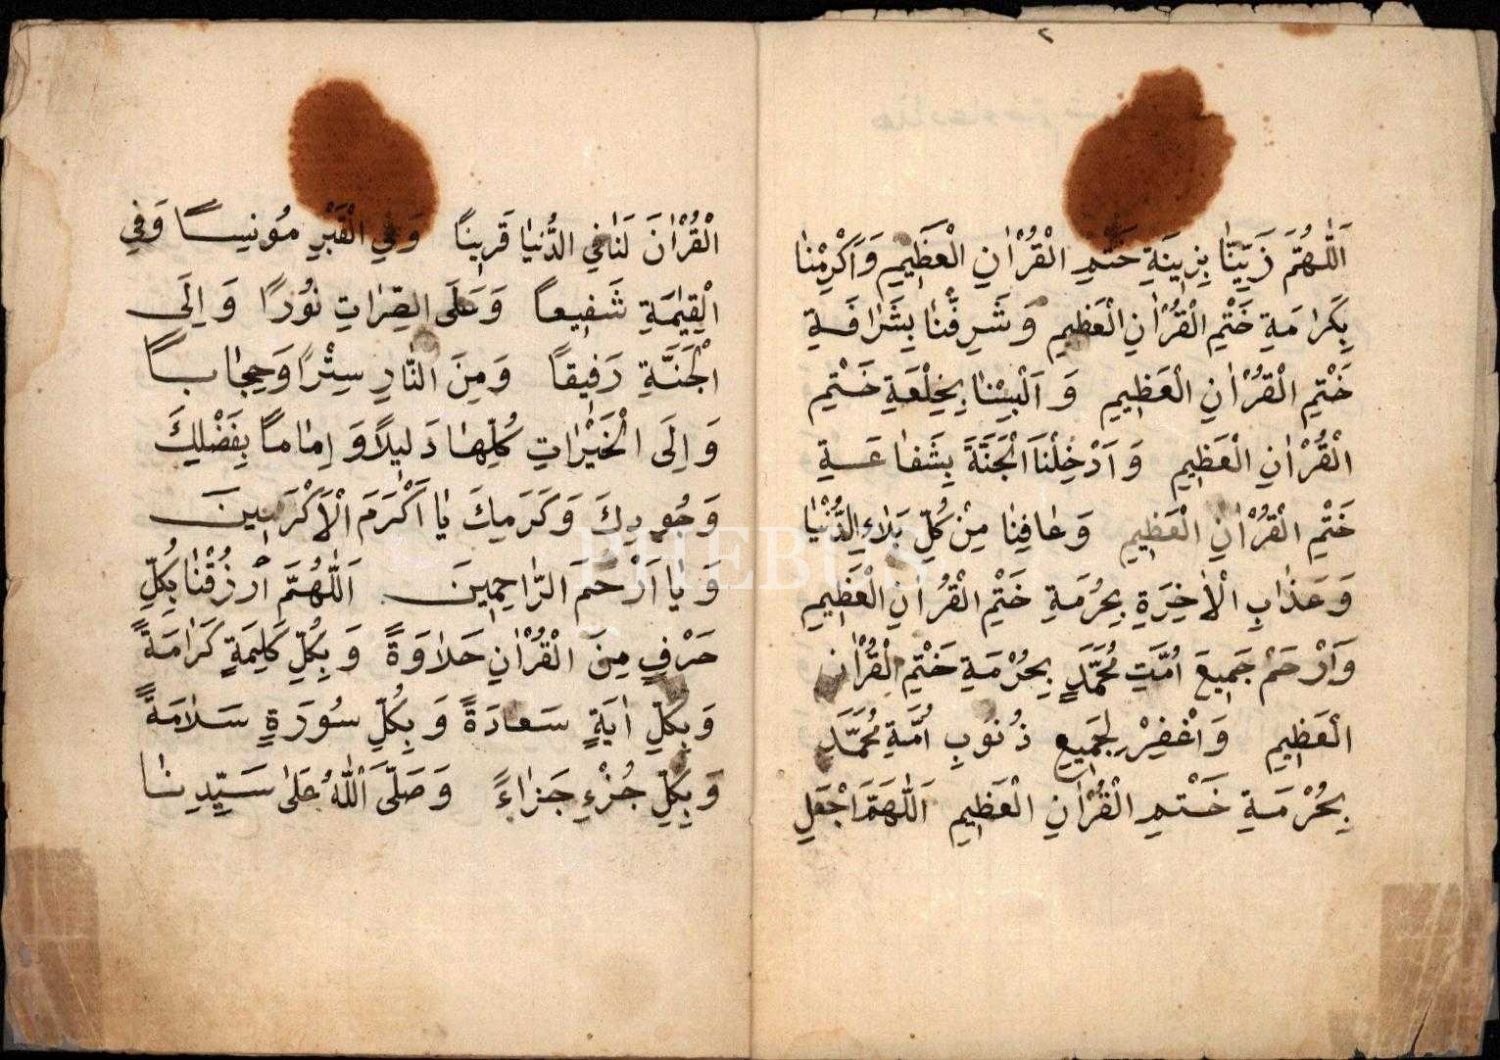 ٢
اَللّٰهُمَّ زَيِّنَّا بِزِينَةِ خَتْمِ الْقُرْاٰنِ الْعَظِيمِ وَاَكْرِمْنَا
بِكَرَامَةِ خَتْمِ الْقُرْاٰنِ الْعَظِيمِ وَشَرِفْنَا بِشَرَافَةِ
خَتْمِ الْقُرْاٰنِ الْعَظِيمِ وَاَلْبِسْنَا بِخِلْعَةِ خَتْمِ
الْقُرْاٰنِ الْعَظِيمِ وَاَدْخِلْنَا الْجَنَّةَ بِشَفَاعَةِ
خَتْمِ الْقُرْاٰنِ الْعَظِيمِ وَعَافِنَا مِنْ كُلِّ بَلَاءِ الدُّنْيَا
وَعَذَابِ الْاٰخِرَةِ بِحُرْمَةِ خَتْمِ الْقُرْاٰنِ الْعَظِيمِ
وَارْحَمْ جَمِيعَ اُمَّتِ مُحَمَّدٍ بِحُرْمَةِ خَتْمِ الْقُرْاٰنِ
الْعَظِيمِ وَاغْفِرْ لِجَمِيعِ ذُنُوبِ اُمَّةِ مُحَمَّدٍ
بِحُرْمَةِ خَتْمِ الْقُرْاٰنِ الْعَظِيمِ اَللّٰهُمَّ اجْعَلِ
الْقُرْاٰنَ لَنَا فِي الدُّنْيَا قَرِينًا وَفِي الْقَبْرِ مُونِسًا وَفِي
الْقِيٰمَةِ شَفِيعًا وَعَلَى الصِّرَاتِ نُورًا وَاِلَى
الْجَنَّةِ رَفِيقًا وَمِنَ النَّارِ سِتْرًا وَحِجَابًا
وَاِلَى الْخَيْرَاتِ كُلِّهَا دَلِيلًا وَاِمَامًا بِفَضْلِكَ
وَجُودِكَ وَكَرَمِكَ يَا اَكْرَمَ الْاَكْرَمِينَ
وَيَا اَرْحَمَ الرَّاحِمِينَ اَللّٰهُمَّ ارْزُقْنَا بِكُلِّ
حَرْفٍ مِنَ الْقُرْاٰنِ حَلَاوَةً وَبِكُلِّ كَلِمَةٍ كَرَامَةً
وَبِكُلِّ اٰيَةٍ سَعَادَةً وَبِكُلِّ سُورَةٍ سَلَامَةً
وَبِكُلِّ جُزْءٍ جَزَاءً وَصَلَّى اللّٰهُ عَلٰى سَيِّدِنَا
PHEBUS